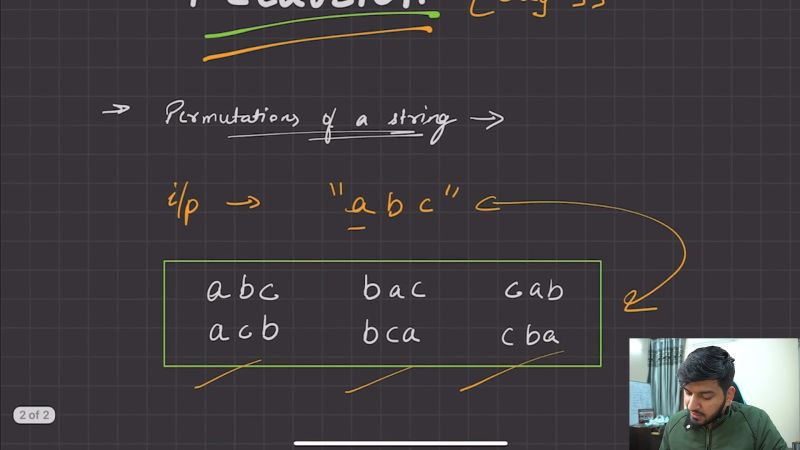 → Permutations of a string →
i/p → "abc"
abc bac cab
acb bca cba
2 of 2